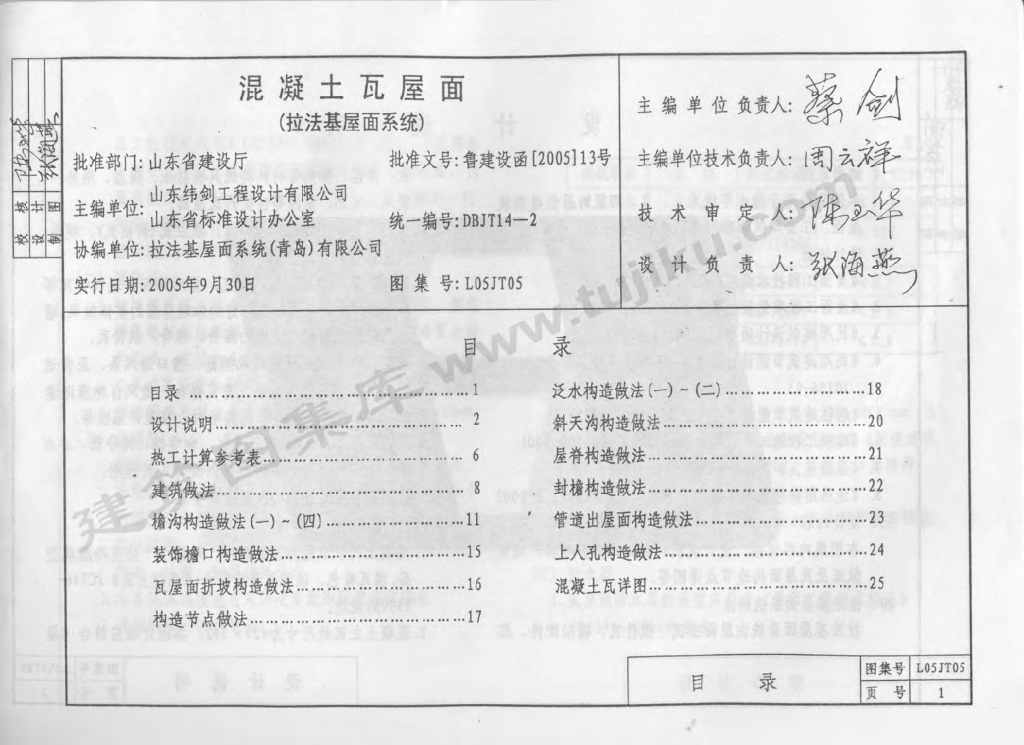 混凝土瓦屋面
(拉法基屋面系统)
批准部门:山东省建设厅
批准文号:鲁建设函[2005]13号
主编单位:山东纬剑工程设计有限公司
山东省标准设计办公室
统一编号:DBJT14-2
协编单位:拉法基屋面系统(青岛)有限公司
实行日期:2005年9月30日
图集号:L05JT05
主编单位负责人:蔡剑
主编单位技术负责人:周云祥
技术审定人:陈玉华
设计负责人:张海燕
校核
设计
制图
目录
目录……1
设计说明……2
热工计算参考表……6
建筑做法……8
檐沟构造做法(一)~(四)……11
装饰檐口构造做法……15
瓦屋面折坡构造做法……16
构造节点做法……17
泛水构造做法(一)~(二)……18
斜天沟构造做法……20
屋脊构造做法……21
封檐构造做法……22
管道出屋面构造做法……23
上人孔构造做法……24
混凝土瓦详图……25
建筑图集库 www.tujiku.com
目录
图集号 L05JT05
页号 1